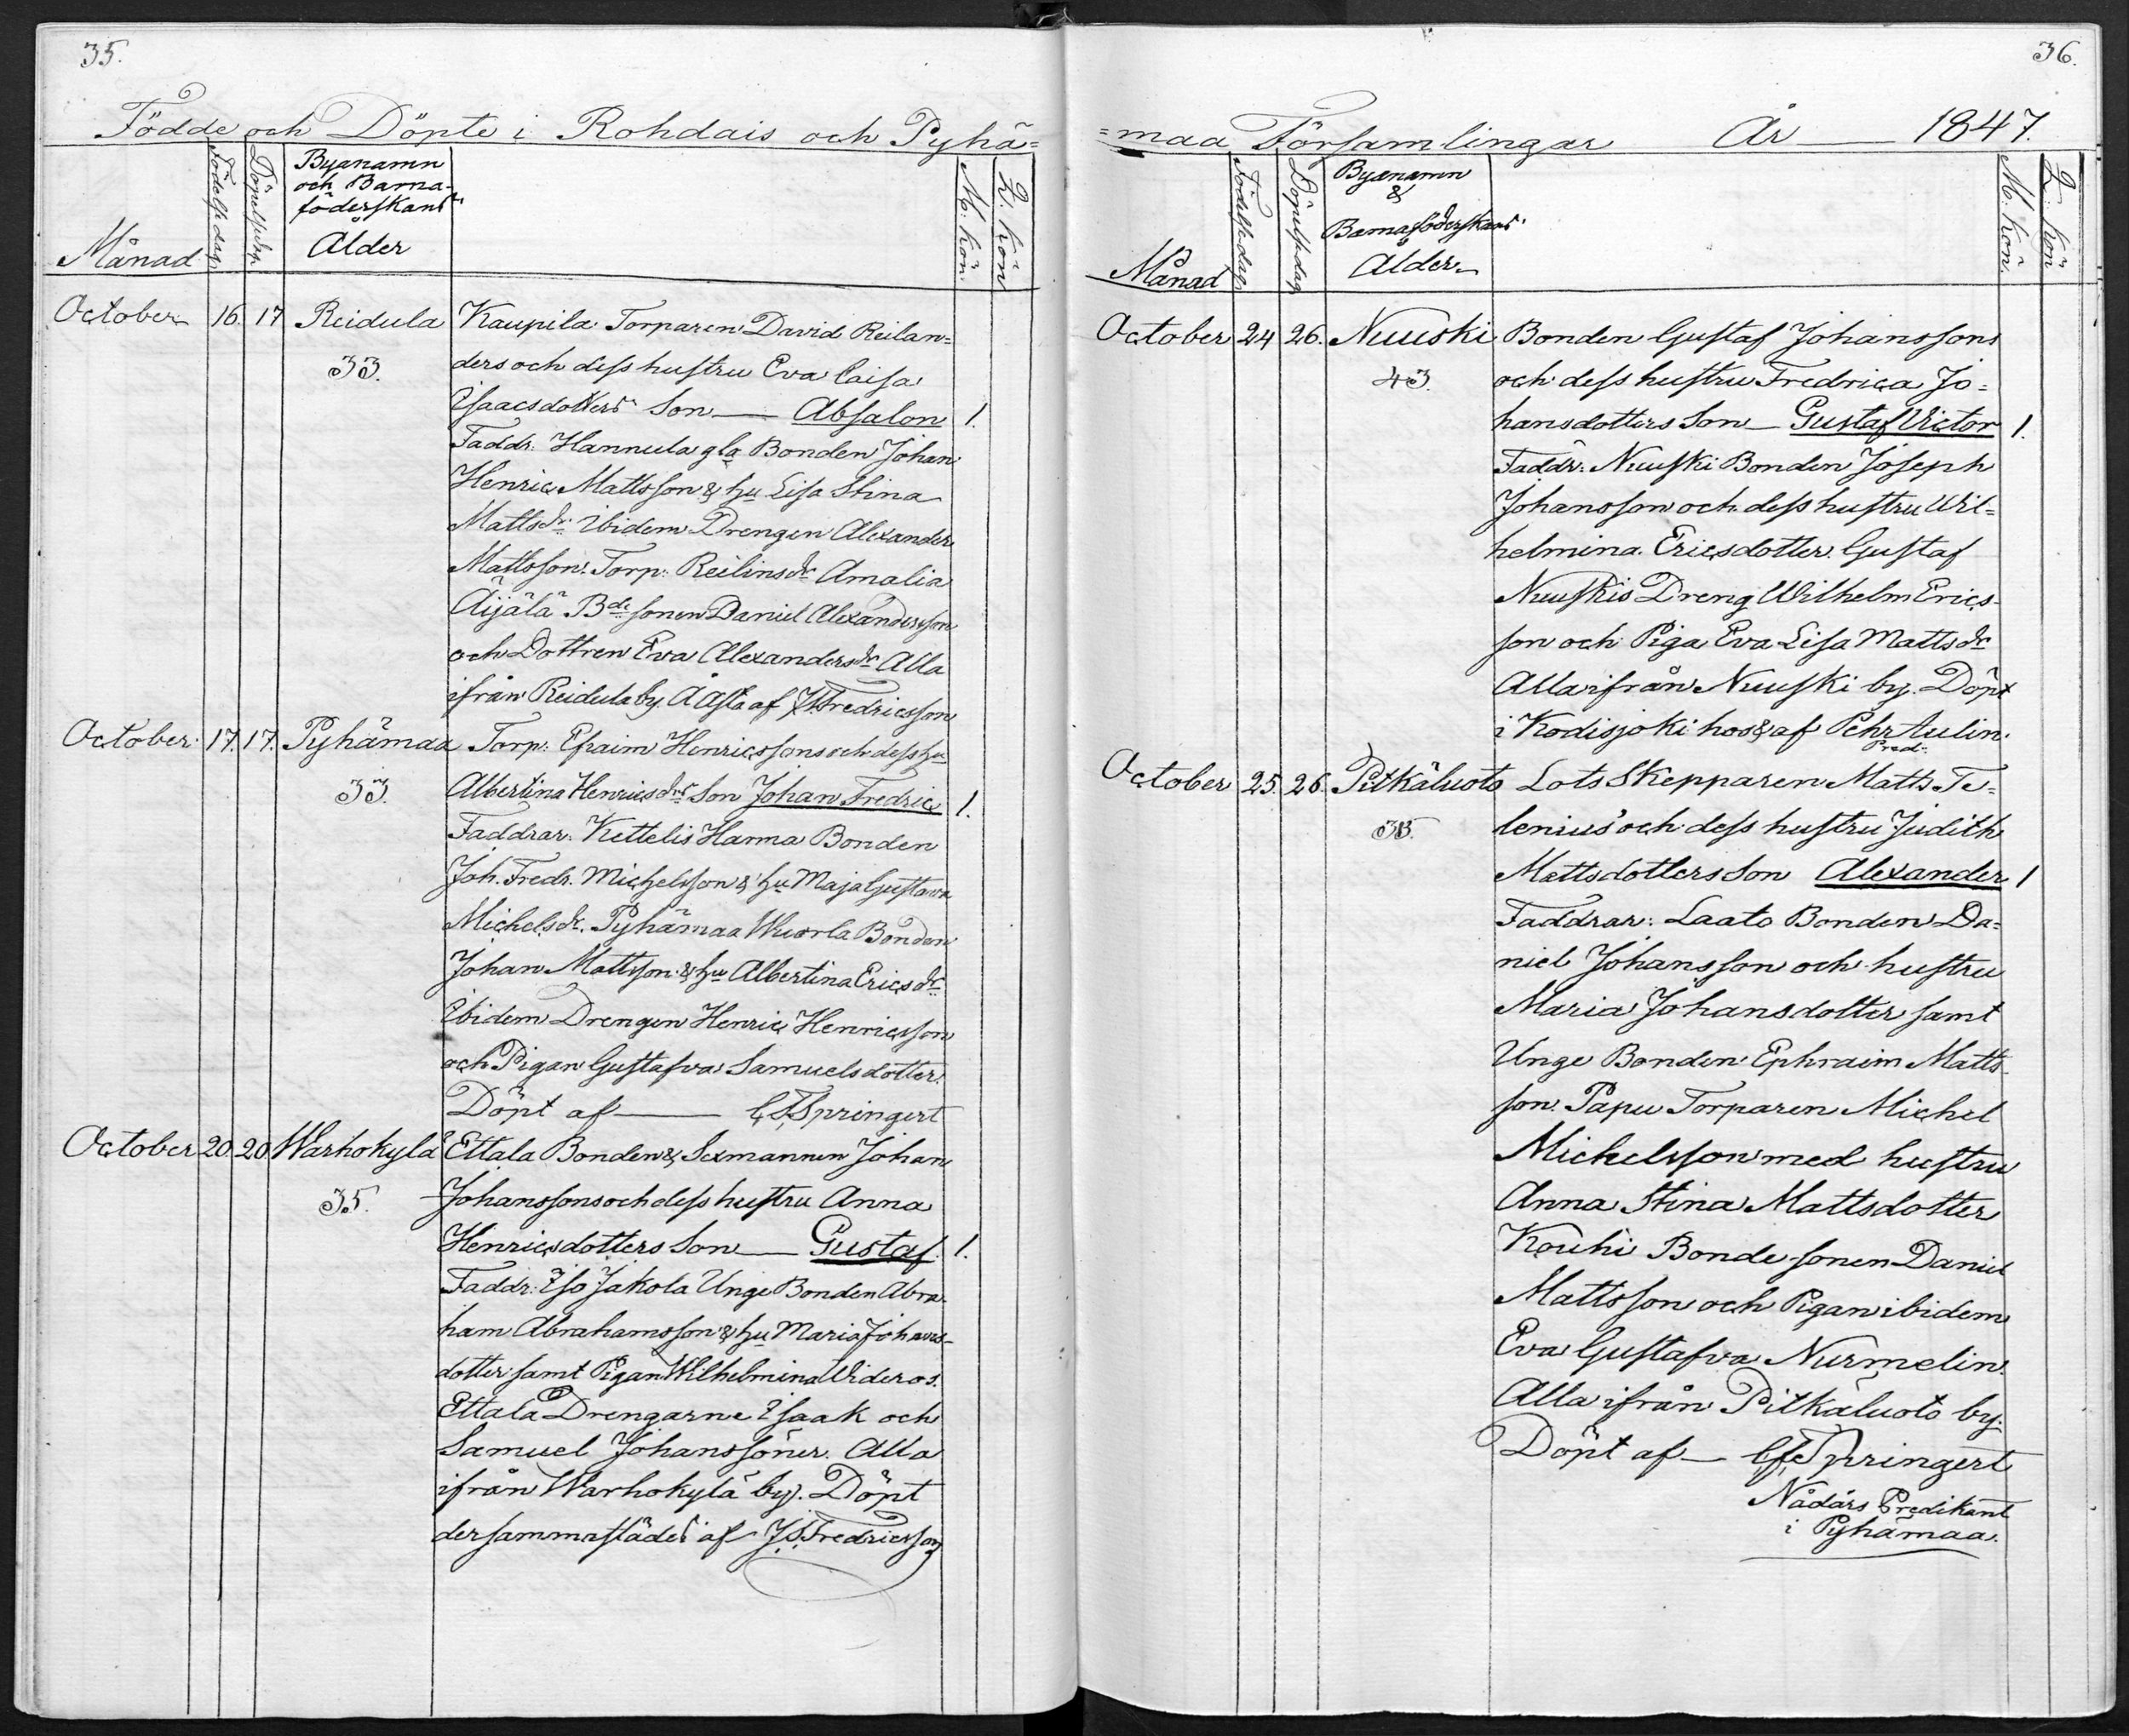 35.
Födde och Döpte i Rohdais och Pyhä=
Månad
Födelsedag
Byanamn
och Barna-
föderskans
Ålder
M. kön.
Q. kön
October 16. 17 Reidula Kaupila Torparen David Reilan=
33. ders och dess hustru Eva Caisa
Isaacsdotters Son — Absalon 1.
Faddr. Hannula gla Bonden Johan
Henric Mattsson & hu Lisa Stina
Mattsdr. Ibidem Drengen Alexander
Mattsson. Torp: Reilinsdr Amalia
Äijälä Bde sonen Daniel Alexandersson
och Dottren Eva Alexandersdr Alla
ifrån Reidula by. af Fredricsson
October 17. 17. Pyhämaa Torp: Efraim Henricssons och dess hu
33. Albertina Henricsdrs Son Johan Fredric 1.
Faddrar. Kettelis Hanna Bonden
Joh. Fredr. Michelsson & hu Maja Gustava
Michelsdr. Pyhämaa Wuorla Bonden
Johan Mattsson & hu Albertina Ericsdr
Ibidem Drengen Henric Henricsson
och Pigan Gustafva Samuelsdotter.
Döpt af — Springert
October 20. 20 Warhokylä Ettala Bonden & Sexmannen Johan
35. Johanssons och dess hustru Anna
Henricsdotters Son — Gustaf. 1.
Faddr: Iso Jakola Unge Bonden Abra-
ham Abrahamsson & hu Maria Johans-
dotter samt Pigan Wilhelmina Wideros.
Ettala Drengarne Isaak och
Samuel Johanssöner. Alla
ifrån Warhokylä by. Döpt
dersammastädes af J.S. Fredricsson
36.
=maa Församlingar År — 1847.
Månad
Födelsedag
Döpelsedag
Byanamn
&
Barnaföderskans
Ålder
M. kön.
Q. kön
October 24 26. Nuuski Bonden Gustaf Johanssons
43. och dess hustru Fredrica Jo=
hansdotters Son — Gustaf Victor 1.
Faddr: Nuuski Bonden Joseph
Johansson och dess hustru Wil=
helmina Ericsdotter. Gustaf
Nuuskis Dreng Wilhelm Erics-
son och Piga Eva Lisa Mattsdr
Alla ifrån Nuuski by. Döpt
i Kodisjoki hos & af Pehr Aulin.
Pred:
October 25. 26 Pitkäluoto Lots Skepparen Matts Te=
lenius och dess hustru Judith
Mattsdotters Son Alexander 1
Faddrar: Laato Bonden Da=
niel Johansson och hustru
Maria Johansdotter samt
Unge Bonden Ephraim Matts
son. Papu Torparen Michel
Michelsson med hustru
Anna Stina Mattsdotter
Kouhi Bonde sonen Daniel
Mattsson och Pigan ibidem
Eva Gustafva Nurmelin.
Alla ifrån Pitkäluoto by.
Döpt af — Springert
Nådårs Predikant
i Pyhämaa.